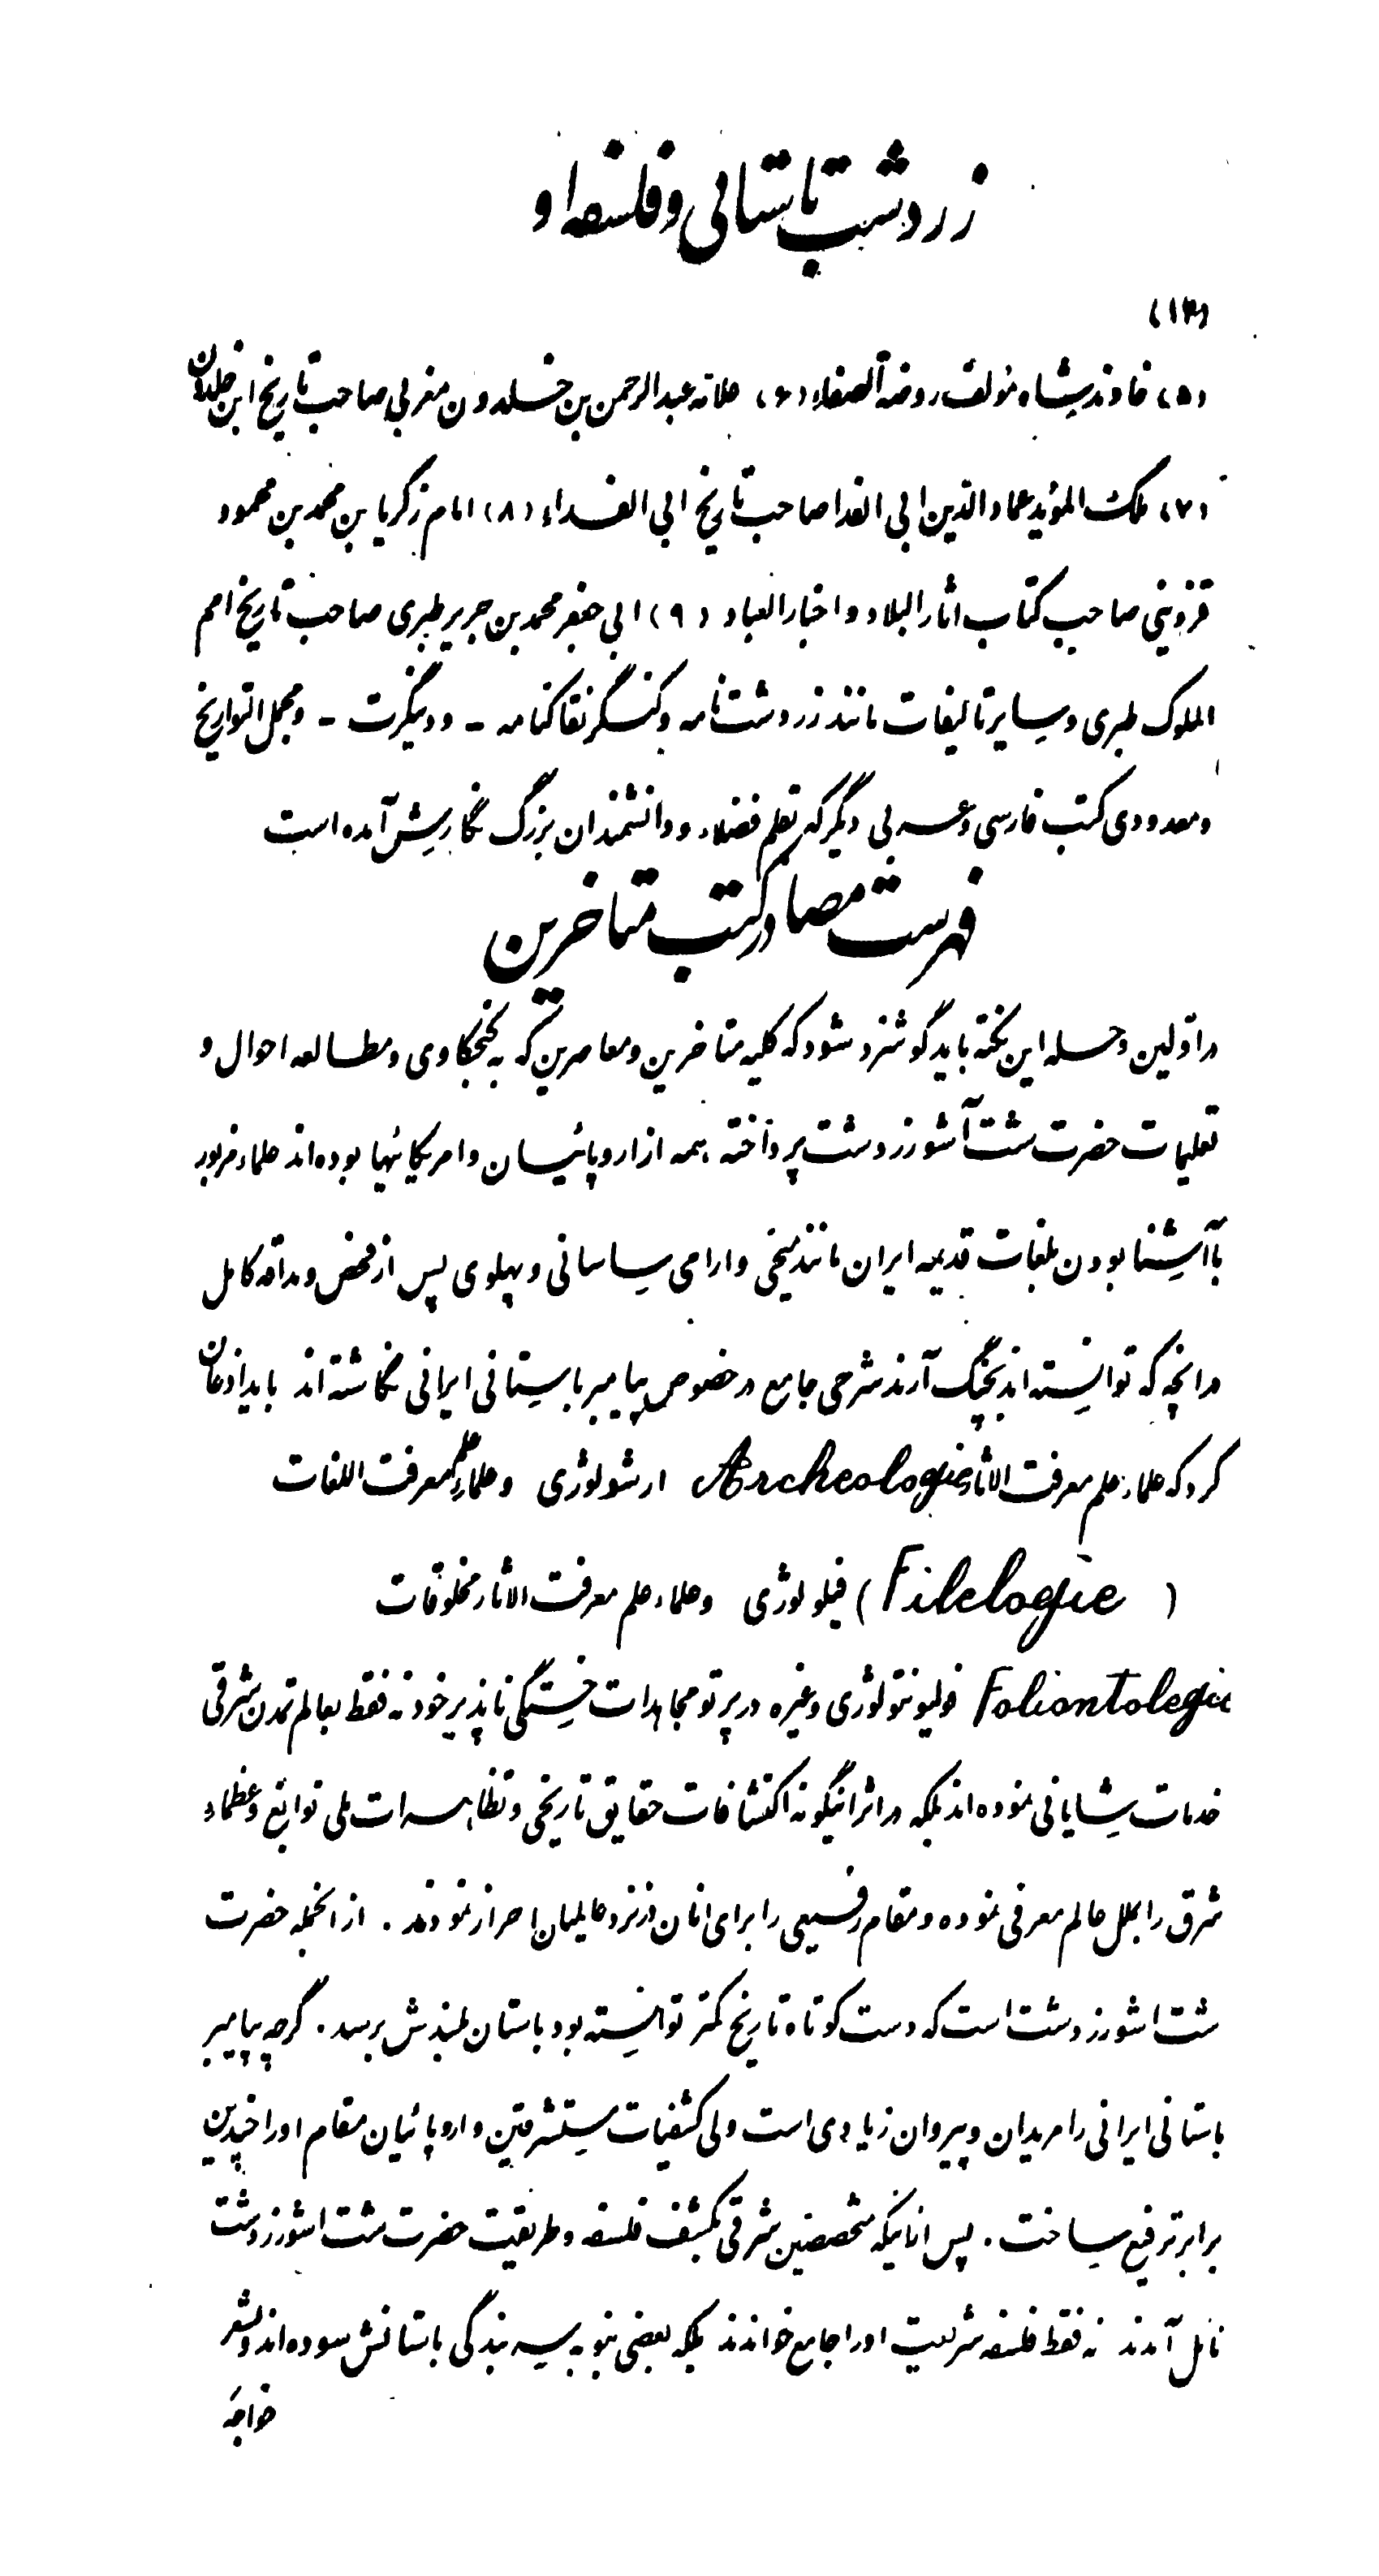 زردشت باستانی و فلسفه او
(۱۴)
(۵) خاوندشاه مؤلف روضة الصفاء (۶) علامه عبدالرحمن بن خسلدون مغربی صاحب تاریخ ابن خلدون
(۷) ملک المؤید عمادالدین ابی الفدا صاحب تاریخ ابی الفداء (۸) امام زکریا بن محمد بن محمود
قزوینی صاحب کتاب اثار البلاد و اخبار العباد (۹) ابی جعفر محمد بن جریر طبری صاحب تاریخ امم
الملوک طبری و سایر تالیفات مانند زردوشت نامه و کنسگر نقاکنامه - و دینکرت - و مجمل التواریخ
و معدودی کتب فارسی و عربی دیگر که بقلم فضلاء و دانشمندان بزرگ نگارش آمده است
فهرست مصادر کتب متاخرین
در اولین وحله این نکته باید گوشزد شود که کلیه متاخرین و معاصرین که به کنجکاوی و مطالعه احوال و
تعلیمات حضرت شت آشو زردوشت پرداخته همه از اروپائیان و امریکائیها بوده‌اند علماء مزبور
با آشنا بودن بلغات قدیمه ایران مانند میخی و ارامی ساسانی و پهلوی پس از فحص و مداقه کامل
در انچه که توانسته‌اند بچنگ آرند شرحی جامع در خصوص پیامبر باستانی ایرانی نگاشته‌اند باید اذعان
کرد که علماء علم معرفت الاثار Archeologie ارشولوژی و علماء علم معرفت اللغات
(Filelogie) فیلولوژی و علماء علم معرفت الاثار مخلوقات
Foliontolegie فولیونتولوژی و غیره در پرتو مجاهدات خستگی ناپذیر خود نه فقط بعالم تمدن شرقی
خدمات شایانی نموده‌اند بلکه در اثر اینگونه اکتشافات حقایق تاریخی و تظاهرات ملی نوابغ و عظماء
شرق را بملل عالم معرفی نموده و مقام رفیعی را برای انان در نزد عالمیان احراز نمودند . از انجمله حضرت
شت اشو زردوشت است که دست کوتاه تاریخ کمتر توانسته بود باستان بلندش برسد . گرچه پیامبر
باستانی ایرانی را مریدان و پیروان زیادی است ولی کشفیات مستشرقین و اروپائیان مقام او را چندین
برابر ترفیع ساخت . پس انانیکه متخصصین شرقی بکشف فلسفه و طریقیت حضرت شت اشو زردوشت
نایل آمدند نه فقط فلسفه شریعت او را جامع خواندند بلکه بعضی بنوبه سر بندگی باستانش سوده‌اند و شعر
خواجه